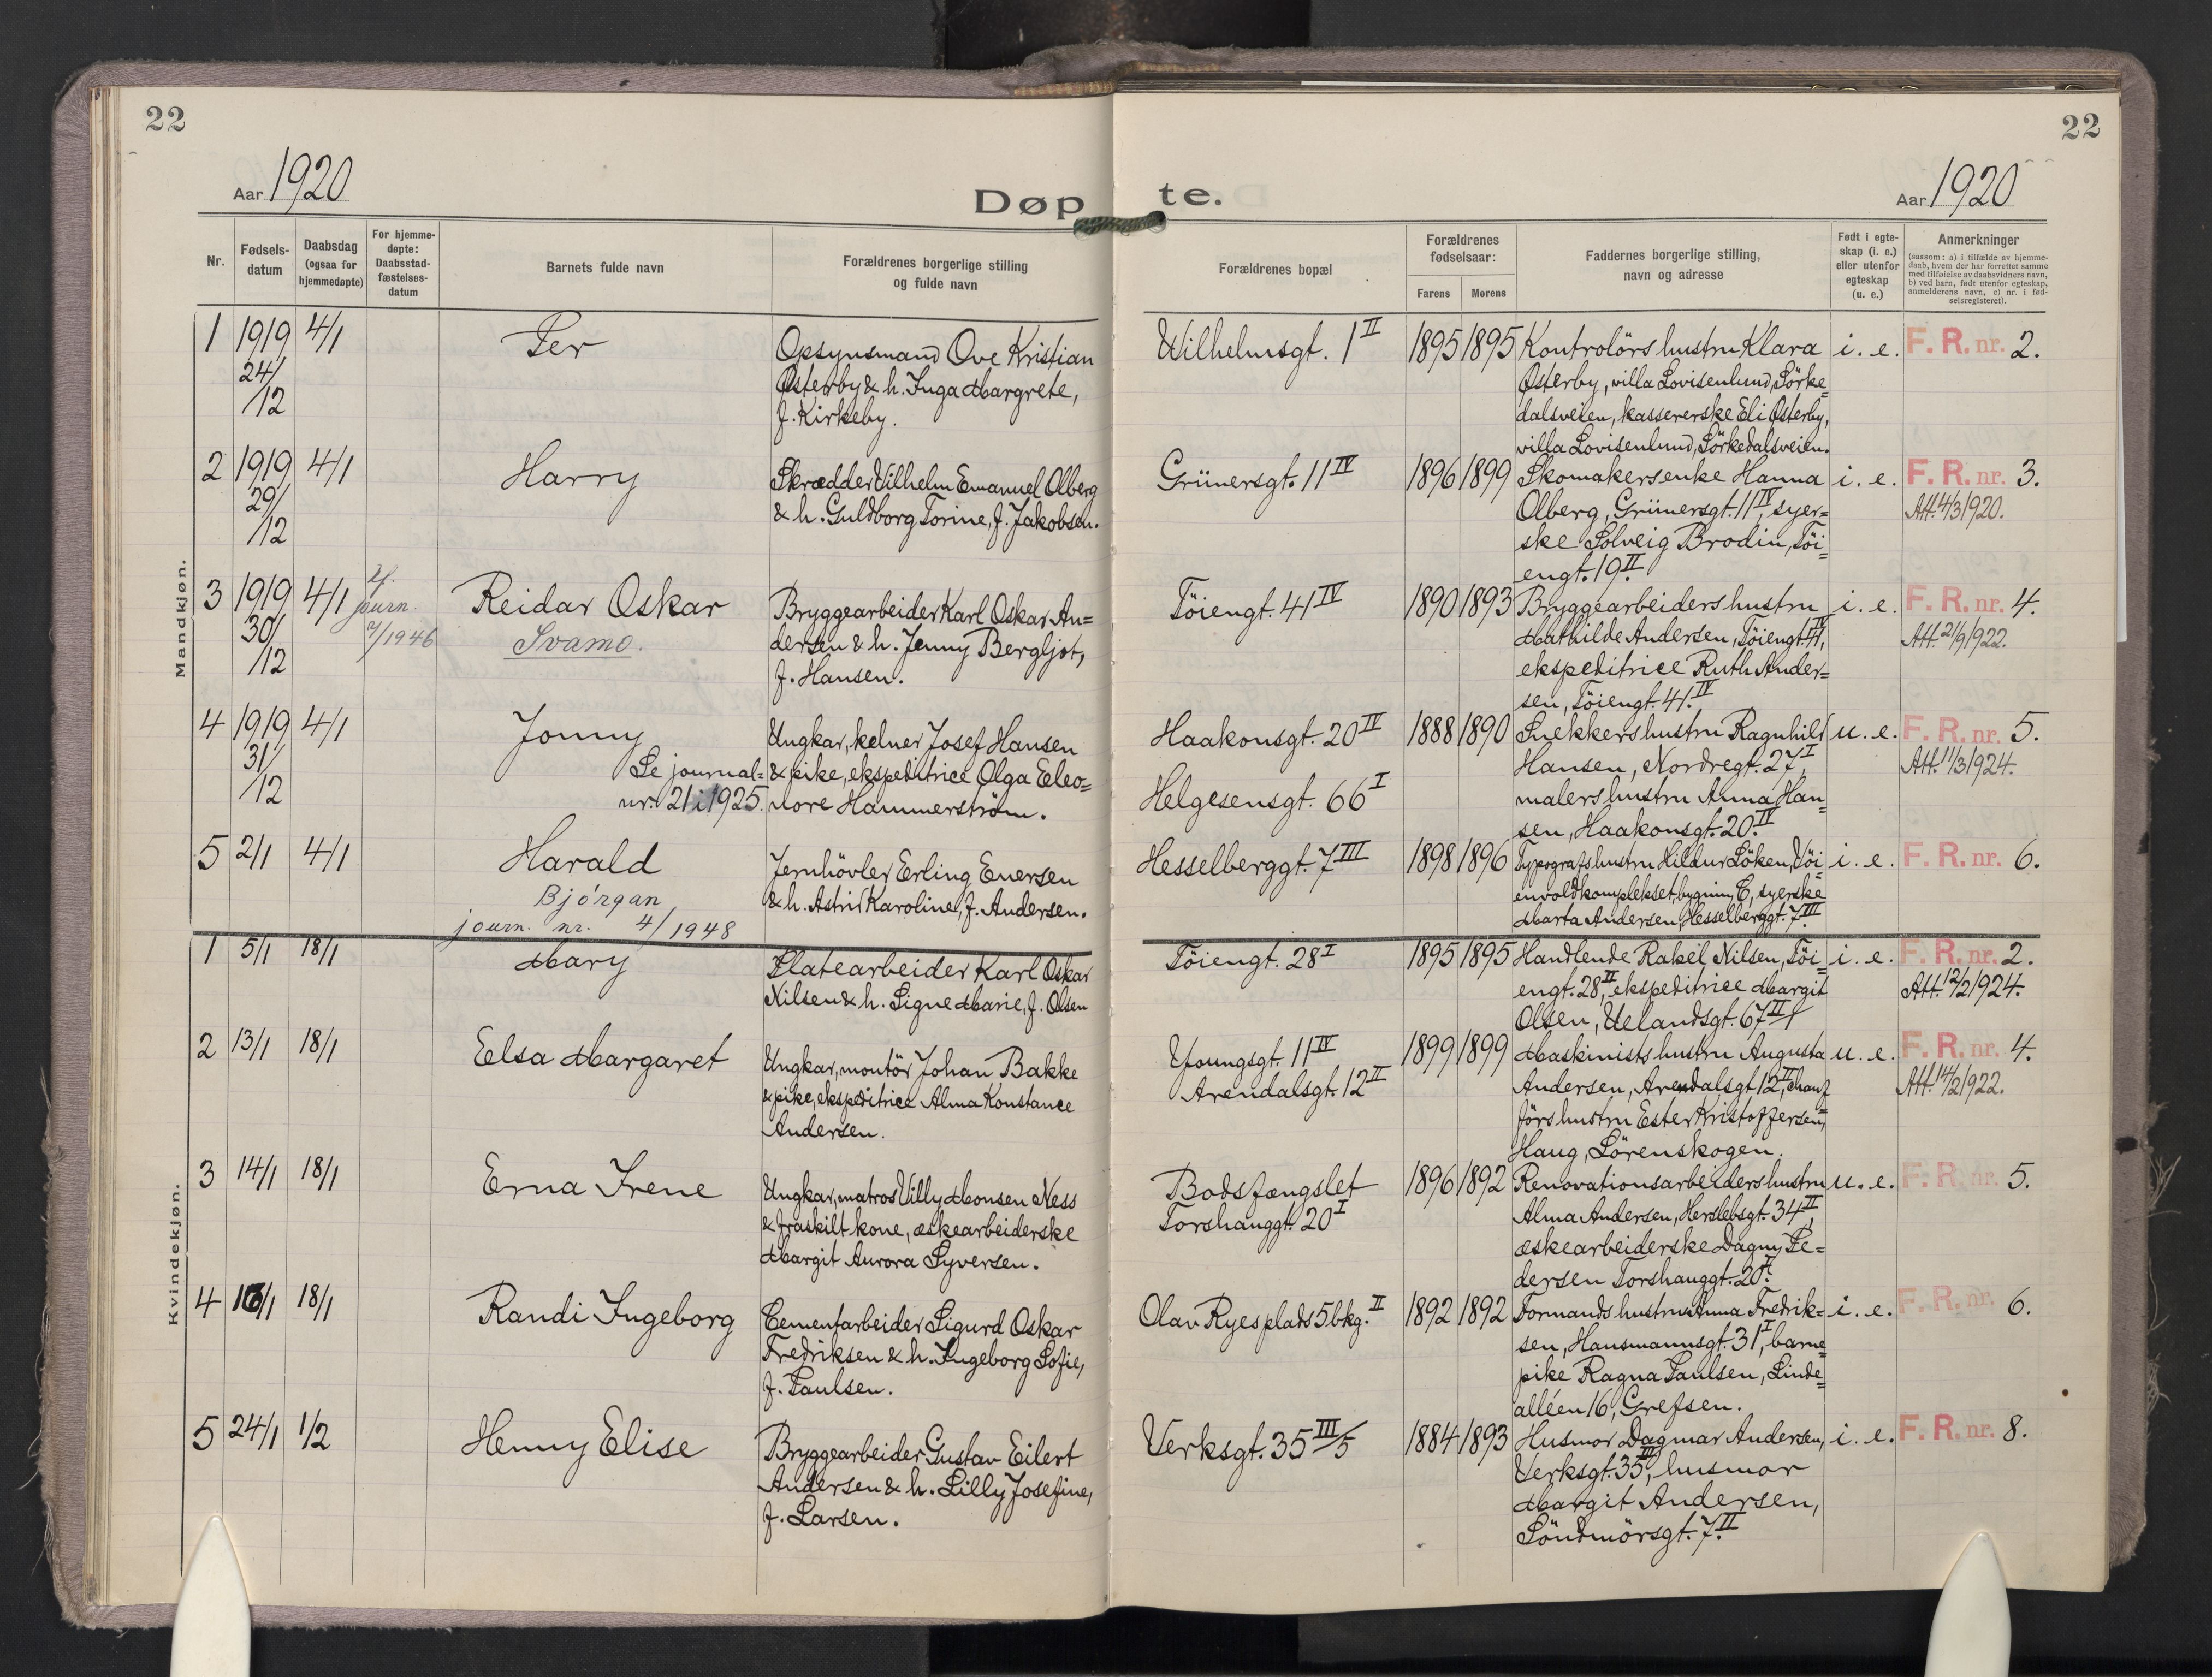 22
22
Aar 1920
Døpte.
Aar 1920
Nr.
Fødsels-
datum
Daabsdag
(ogsaa for
hjemmedøpte)
For hjemme-
døpte:
Daabsstad-
fæstelses-
datum
Barnets fulde navn
Forældrenes borgerlige stilling
og fulde navn
Forældrenes bopæl
Forældrenes
fødselsaar:
Farens
Morens
Faddernes borgerlige stilling,
navn og adresse
Født i egte-
skap (i. e.)
eller utenfor
egteskap
(u. e.)
Anmerkninger
(saasom: a) i tilfælde av hjemme-
daab, hvem der har forrettet samme
med tilføielse av daabsvidners navn,
b) ved barn, født utenfor egteskap,
anmelderens navn, c) nr. i fød-
selsregisteret).
Mandkjøn.
1
1919
24/
/12
4/1
Per
Opsynsmand Ove Kristian
Østerby & h. Inga Margrete,
f. Kirkeby.
Wilhelmsgt. 1 II
1895
1895
Kontrolörs hustru Klara
Østerby, villa Lovisenlund, Sörke=
dalsveien, kassererske Eli Østerby,
villa Lovisenlund, Sörkedalsveien.
i. e.
F. R. nr. 2.
2
1919
29/
/12
4/1
Harry
Skrædder Vilhelm Emanuel Olberg
& h. Guldborg Torine, f. Jakobsen.
Grünersgt. 11 IV
1896
1899
Skomakersenke Hanna
Olberg, Grünersgt. 11 IV, syer=
ske Solveig Brodin, Töi=
engt. 19 II.
i. e.
F. R. nr. 3.
Att. 4/3 1920.
3
1919
30/
/12
4/1
journ.
7/1946
Reidar Oskar
Svamo.
Bryggearbeider Karl Oskar An=
dersen & h. Jenny Bergljot,
f. Hansen.
Töiengt. 41 IV
1890
1893
Bryggearbeiders hustru
Mathilde Andersen, Töiengt. 41 IV,
ekspeditrice Ruth Ander=
sen, Töiengt. 41. IV
i. e.
F. R. nr. 4.
Att. 21/9 1922.
4
1919
31/
/12
4/1
Jonny
Se journal=
nr. 21 i 1925.
Ungkar, kelner Josef Hansen
& pike, ekspeditrice Olga Eleo=
nore Hammerström.
Haakonsgt. 20 IV
Helgesensgt. 66 I
1888
1890
Snekkers hustru Ragnhild
Hansen, Nordregt. 27 I,
malers hustru Anna Han=
sen, Haakonsgt. 20. IV
u. e.
F. R. nr. 5.
Att. 11/3 1924.
5
2/1
4/1
Harald
Bjórgan
journ. nr. 4/1948
Jernhövler Erling Enersen
& h. Astrid Karoline, f. Andersen.
Hesselberggt. 7 III
1898
1896
Typografs hustru Hildur Löken, Töi=
envoldkomplekset, bygning C, syerske
Marta Andersen, Hesselberggt. 7 III
i. e.
F. R. nr. 6.
Kvindekjøn.
1
5/1
18/1
Mary
Platearbeider Karl Oskar
Nilsen & h. Signe Marie, f. Olsen
Töiengt. 28 I
1895
1895
Handlende Rakel Nilsen, Töi=
engt. 28 II, ekspeditrice Margit
Olsen, Uelandsgt. 67 II/1
i. e.
F. R. nr. 2.
Att. 12/2 1924.
2
13/1
18/1
Elsa Margaret
Ungkar, montör Johan Bakke
& pike, ekspeditrice Alma Konstance
Andersen.
Youngsgt. 11 IV
Arendalsgt. 12 II
1899
1899
Maskinists hustru Augusta
Andersen, Arendalsgt. 12 II, chauf=
förs hustru Ester Kristoffersen,
Haug, Lörenskogen.
u. e.
F. R. nr. 4.
Att. 14/2 1922.
3
14/1
18/1
Erna Irene
Ungkar, matros Villy Monsen Ness
& fraskilt kone, æskearbeiderske
Margit Aurora Syversen.
Bodsfængslet
Torshauggt. 20 I
1896
1892
Renovationsarbeiders hustru
Alma Andersen, Herslebsgt. 34 II,
æskearbeiderske Dagny Pe=
dersen Torshauggt. 20 I.
u. e.
F. R. nr. 5.
4
16/1
18/1
Randi Ingeborg
Cementarbeider Sigurd Oskar
Fredriksen & h. Ingeborg Sofie,
f. Paulsen.
Olav Ryes plads 5 bkg. II
1892
1892
Formands hustru Anna Fredrik=
sen, Hausmannsgt. 31 I, barne=
pike Ragna Paulsen, Linde=
alléen 16, Grefsen.
i. e.
F. R. nr. 6.
5
24/1
1/2
Henny Elise
Bryggearbeider Gustav Eilert
Andersen & h. Lilly Josefine,
f. Larsen.
Verksgt. 35 III/5
1884
1893
Husmor Dagmar Andersen,
Verksgt. 35 III, husmor
Margit Andersen,
Söndmörsgt. 7. II
i. e.
F. R. nr. 8.